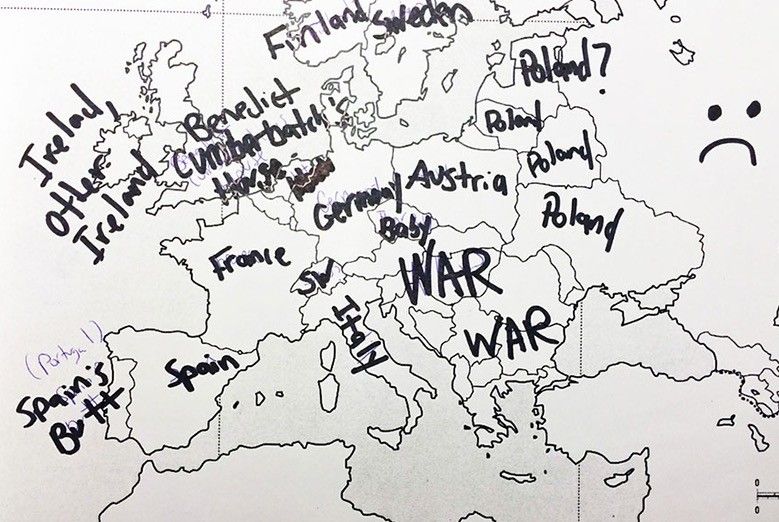 Finland
Sweden
Poland?
Poland
Poland
Poland
Irelad,
Other
Ireland
Benedict
Cumberbatch's
House
Germany
Austria
Baby
France
SW
WAR
WAR
Italy
(Portugal)
Spain's
Butt
Spain
0
0